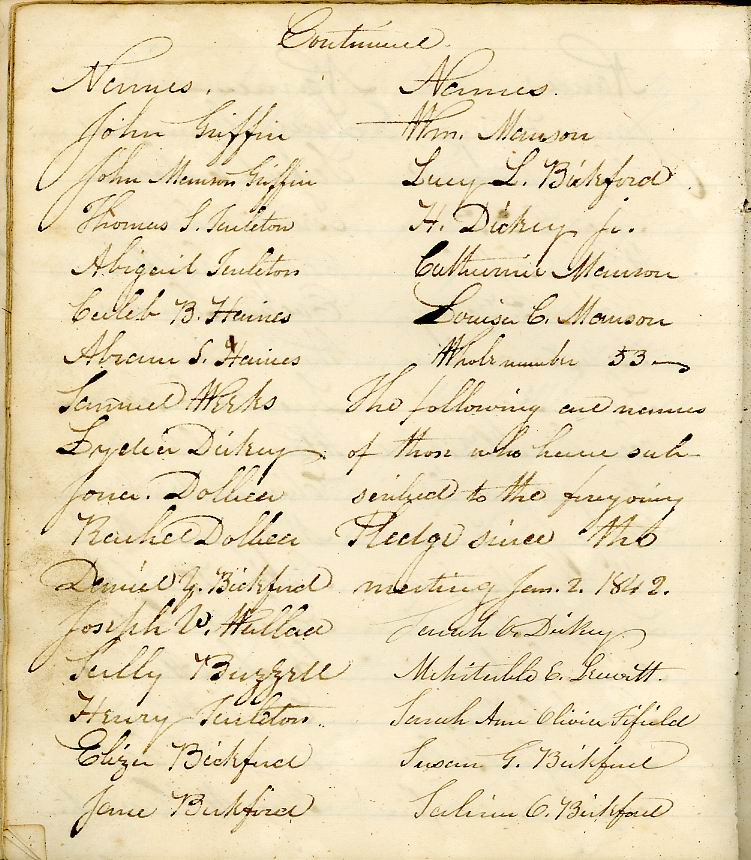 Continued.
Names.
John Griffin
John Manson Griffin
Thomas S. Tarleton
Abigail Tarleton
Caleb B. Haines
Abram S. Haines
Samuel Weeks
Lydia Dickey
Jona. Dolbeer
Rachel Dolbeer
Daniel Y. Bickford
Joseph W. Wallace
Sally Buzzell
Henry Tarleton.
Eliza Bickford
Jane Bickford
Names.
Wm. Manson
Lucy L. Bickford
H. Dickey jr.
Catharine Manson
Louisa C. Manson
Whole number 53
The following are names
of those who have sub-
scribed to the foregoing
Pledge since the
meeting Jan. 2. 1842.
Sarah O. Dickey
Mehitable E. Leavitt.
Sarah Ann Olivia Fifield
Susan G. Bickford
Salina O. Bickford